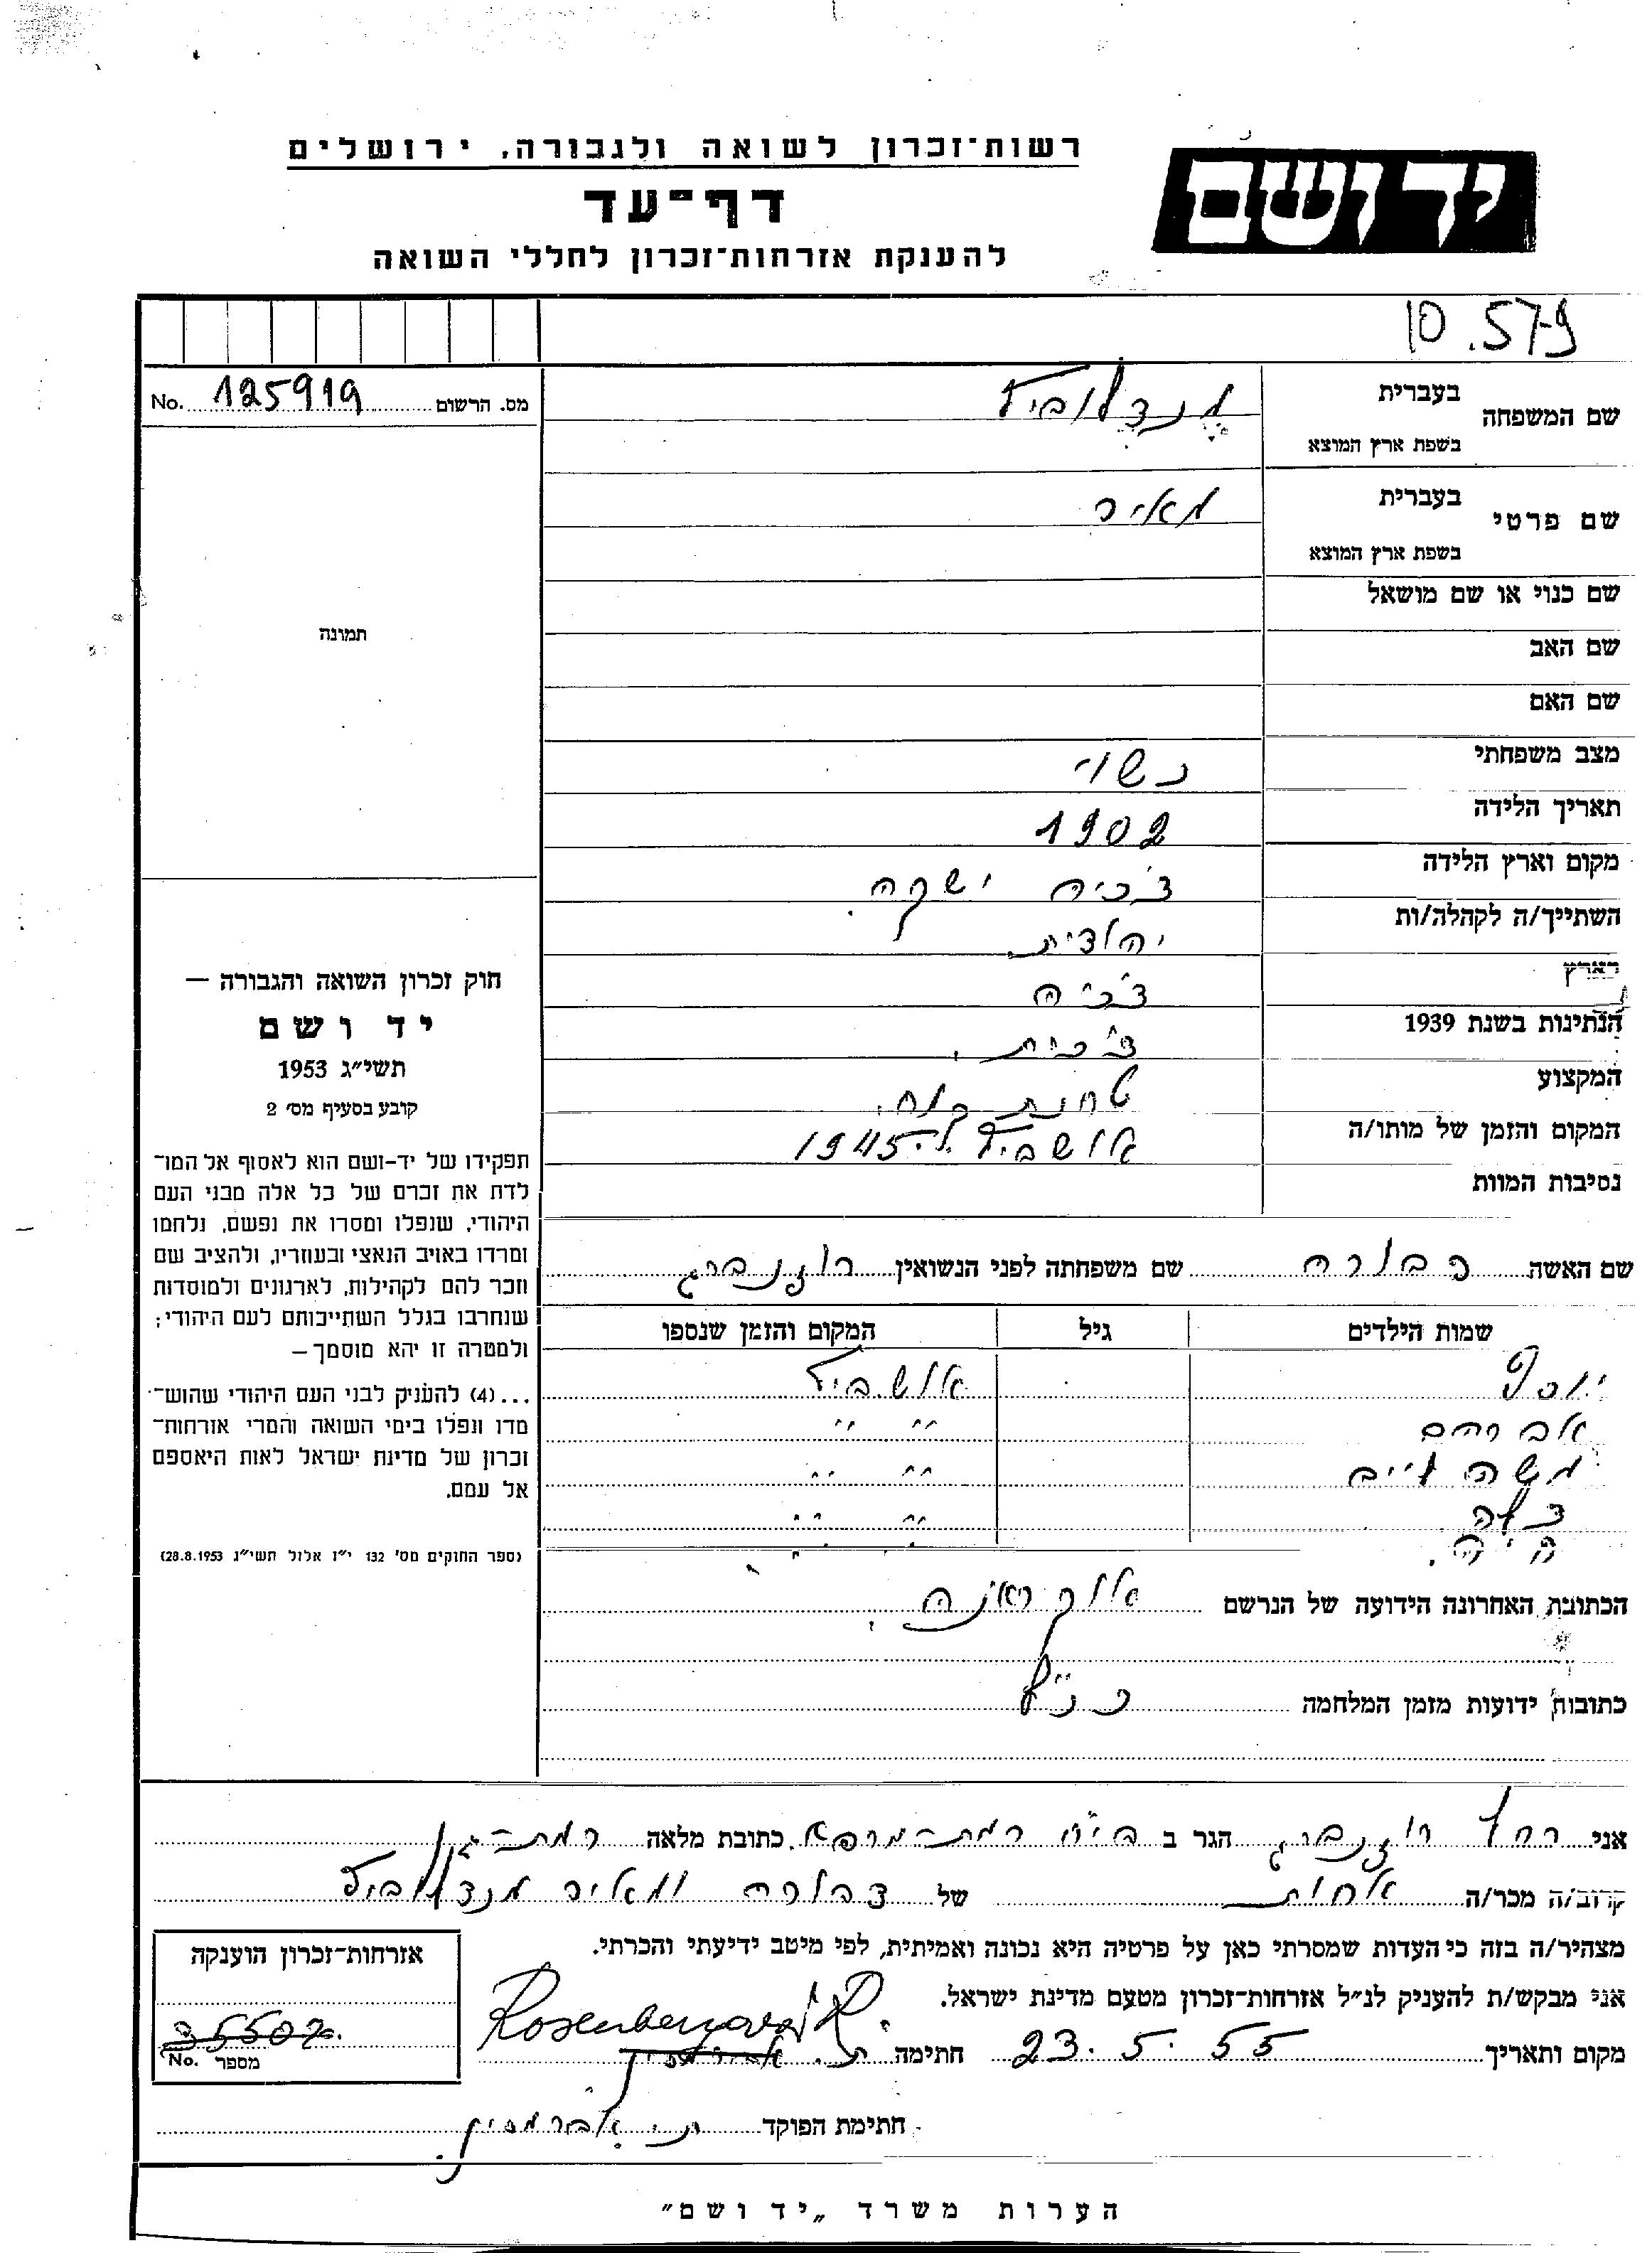 רשות־זכרון לשואה ולגבורה, ירושלים
יד ושם
דף־עד
להענקת אזרחות־זכרון לחללי השואה
10.579
מס. הרשום 125919 No.
שם המשפחה
בעברית מנדלוביץ
בשפת ארץ המוצא
שם פרטי
בעברית מאיר
בשפת ארץ המוצא
שם כנוי או שם מושאל
שם האב
שם האם
מצב משפחתי נשוי
תאריך הלידה 1902
מקום וארץ הלידה צ'כיה
השתייך/ה לקהלה/ות יהודית
בארץ צ'כיה
הנתינות בשנת 1939 צ'כית.
המקצוע טחנת קמח.
המקום והזמן של מותו/ה אושביץ 1945
נסיבות המוות
תמונה
חוק זכרון השואה והגבורה —
יד ושם
תשי״ג 1953
קובע בסעיף מס׳ 2
תפקידו של יד-ושם הוא לאסוף אל המו־
לדת את זכרם של כל אלה מבני העם
היהודי, שנפלו ומסרו את נפשם, נלחמו
ומרדו באויב הנאצי ובעוזריו, ולהציב שם
וזכר להם לקהילות, לארגונים ולמוסדות
שנחרבו בגלל השתייכותם לעם היהודי;
ולמטרה זו יהא מוסמך —
...(4) להעניק לבני העם היהודי שהוש־
מדו ונפלו בימי השואה והמרי אזרחות־
זכרון של מדינת ישראל לאות היאספם
אל עמם.
(ספר החוקים מס׳ 132 י״ז אלול תשי״ג 28.8.1953)
שם האשה דבורה שם משפחתה לפני הנשואין רוזנברג
שמות הילדים גיל המקום והזמן שנספו
יוסף אושביץ
אברהם ״ ״
משה חיים ״ ״
״ ״
חיה.
הכתובת האחרונה הידועה של הנרשם
כתובות ידועות מזמן המלחמה כנ״ל
אני רחל רוזנברג הגר ב רמת-מרפא. כתובת מלאה רמת-גן
קרוב/ה מכר/ה אחות של דבורה ומאיר מנדלוביץ
מצהיר/ה בזה כי העדות שמסרתי כאן על פרטיה היא נכונה ואמיתית, לפי מיטב ידיעתי והכרתי.
אני מבקש/ת להעניק לנ״ל אזרחות־זכרון מטעם מדינת ישראל.
מקום ותאריך 23.5.55 חתימה Rosenbergová R.
אזרחות־זכרון הוענקה
35507.
מספר No.
חתימת הפוקד
הערות משרד „יד ושם״